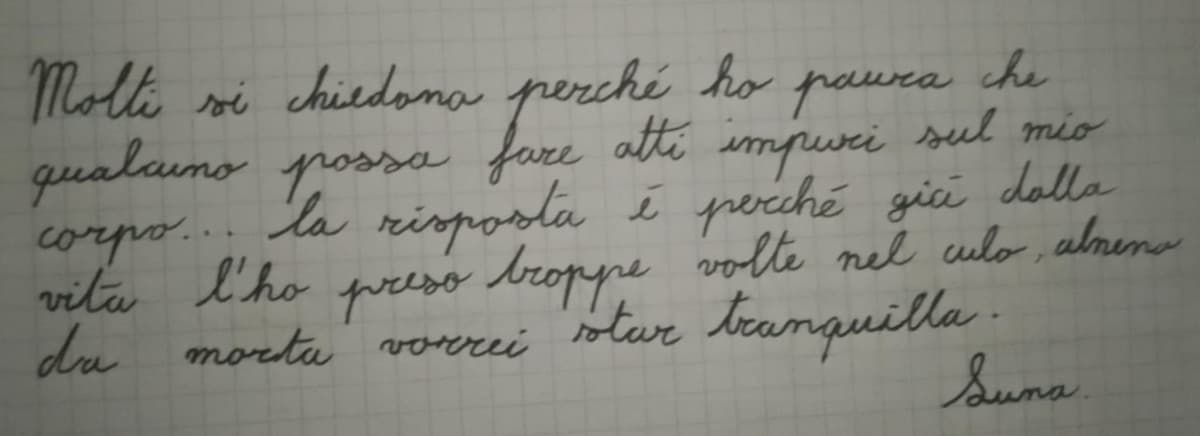 Molti si chiedono perché ho paura che
qualcuno possa fare atti impuri sul mio
corpo... la risposta è perché già dalla
vita l'ho preso troppe volte nel culo, almeno
da morta vorrei star tranquilla.
Suna.